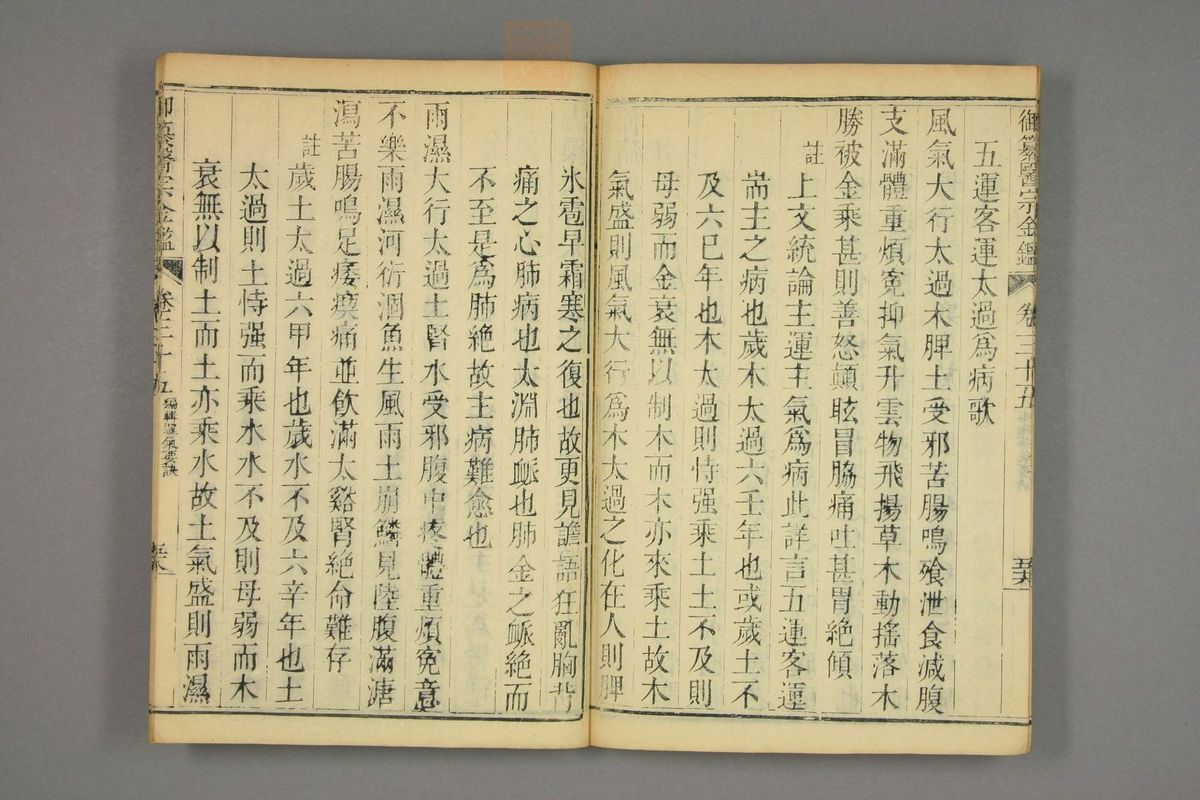 御纂醫宗金鑑 卷三十五
五運客運太過爲病歌
風氣大行太過木脾土受邪苦腸鳴飧泄食減腹
支滿體重煩寃抑氣升雲物飛揚草木動搖落木
勝被金乘甚則善怒顚眩冒脇痛吐甚胃絶傾
註上文統論主運主氣爲病此詳言五運客運
耑主之病也歲木太過六壬年也或歲土不
及六已年也木太過則恃强乘土土不及則
母弱而金衰無以制木而木亦來乘土故木
氣盛則風氣大行爲木太過之化在人則脾
氷雹早霜寒之復也故更見譫語狂亂胸背
痛之心肺病也太淵肺䘑也肺金之䘑絶而
不至是爲肺絶故主病難愈也
雨濕大行太過土腎水受邪腹中疼體重煩寃意
不樂雨濕河衍涸魚生風雨土崩鱗見陸腹滿溏
瀉苦腸鳴足痿瘈痛並飮滿太谿腎絶命難存
註歲土太過六甲年也歲水不及六辛年也土
太過則土恃强而乘水水不及則母弱而木
衰無以制土而土亦乘水故土氣盛則雨濕
御纂醫宗金鑑 卷三十五 編輯運氣要訣